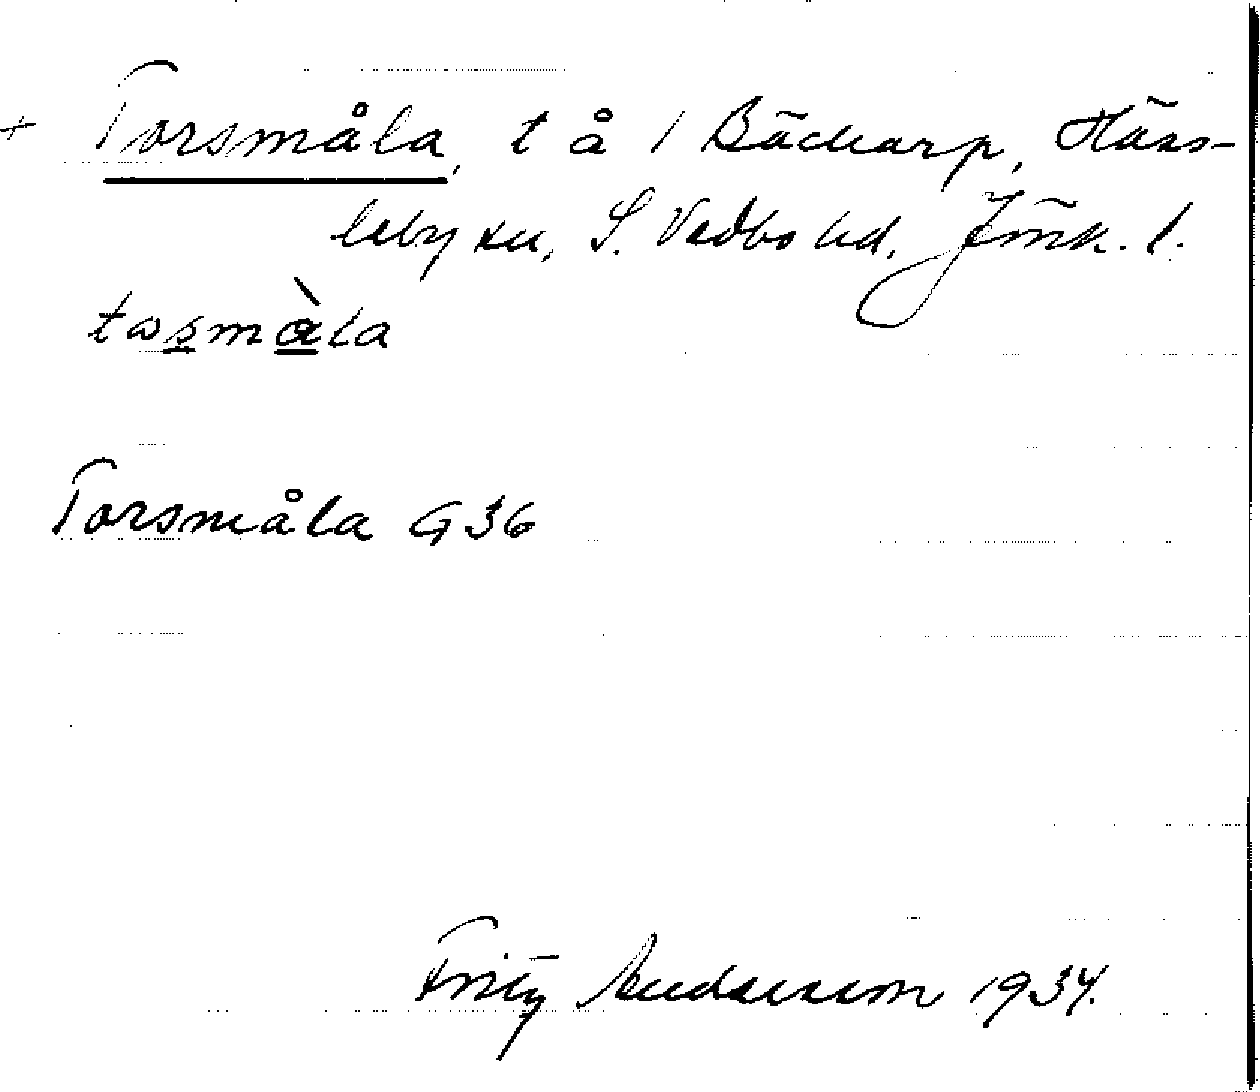 + Torsmåla, t å 1 Bäckarp, Häss-
leby sn, S. Vedbo hd, Jönk. l.
tasmàla
Torsmåla G36
Fritz Andersson 1934.